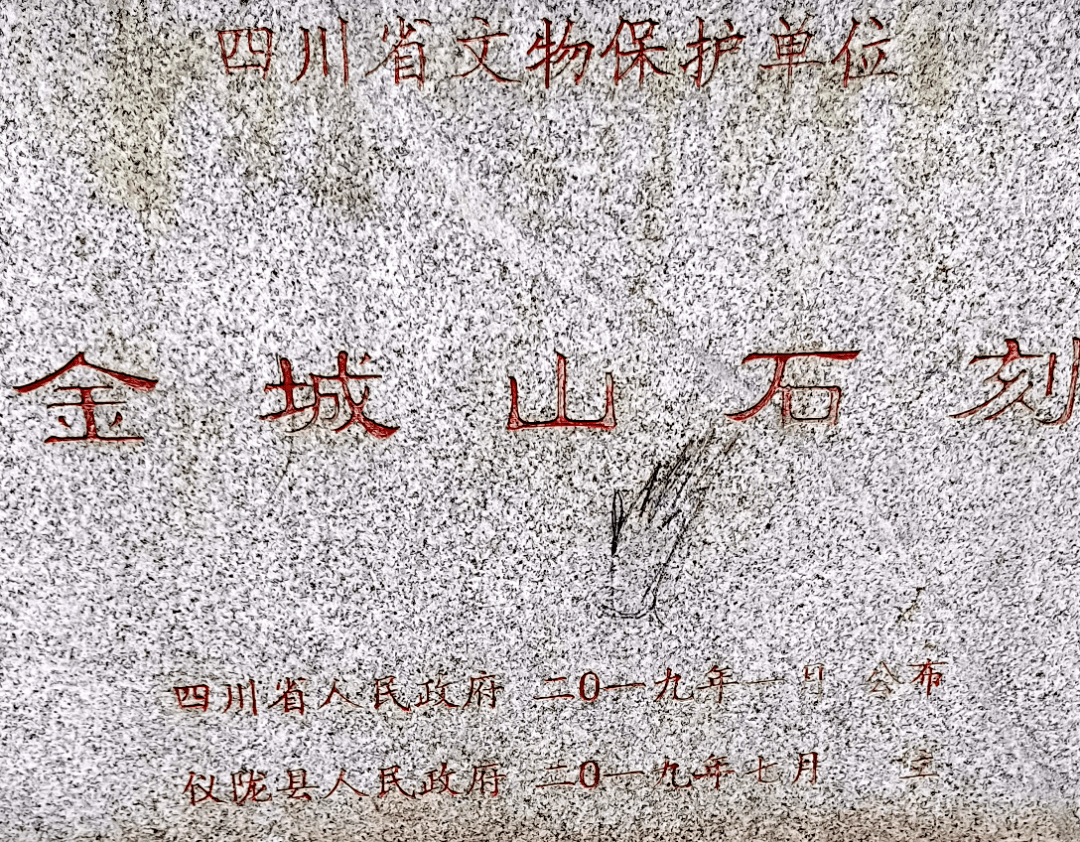 四川省文物保护单位
金城山石刻
四川省人民政府 二0一九年一月 公布
仪陇县人民政府 二0一九年七月 立